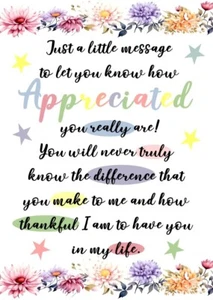 Just a little message
to let you know how
Appreciated
you really are!
You will never truly
know the difference that
you make to me and how
thankful I am to have you
in my life.